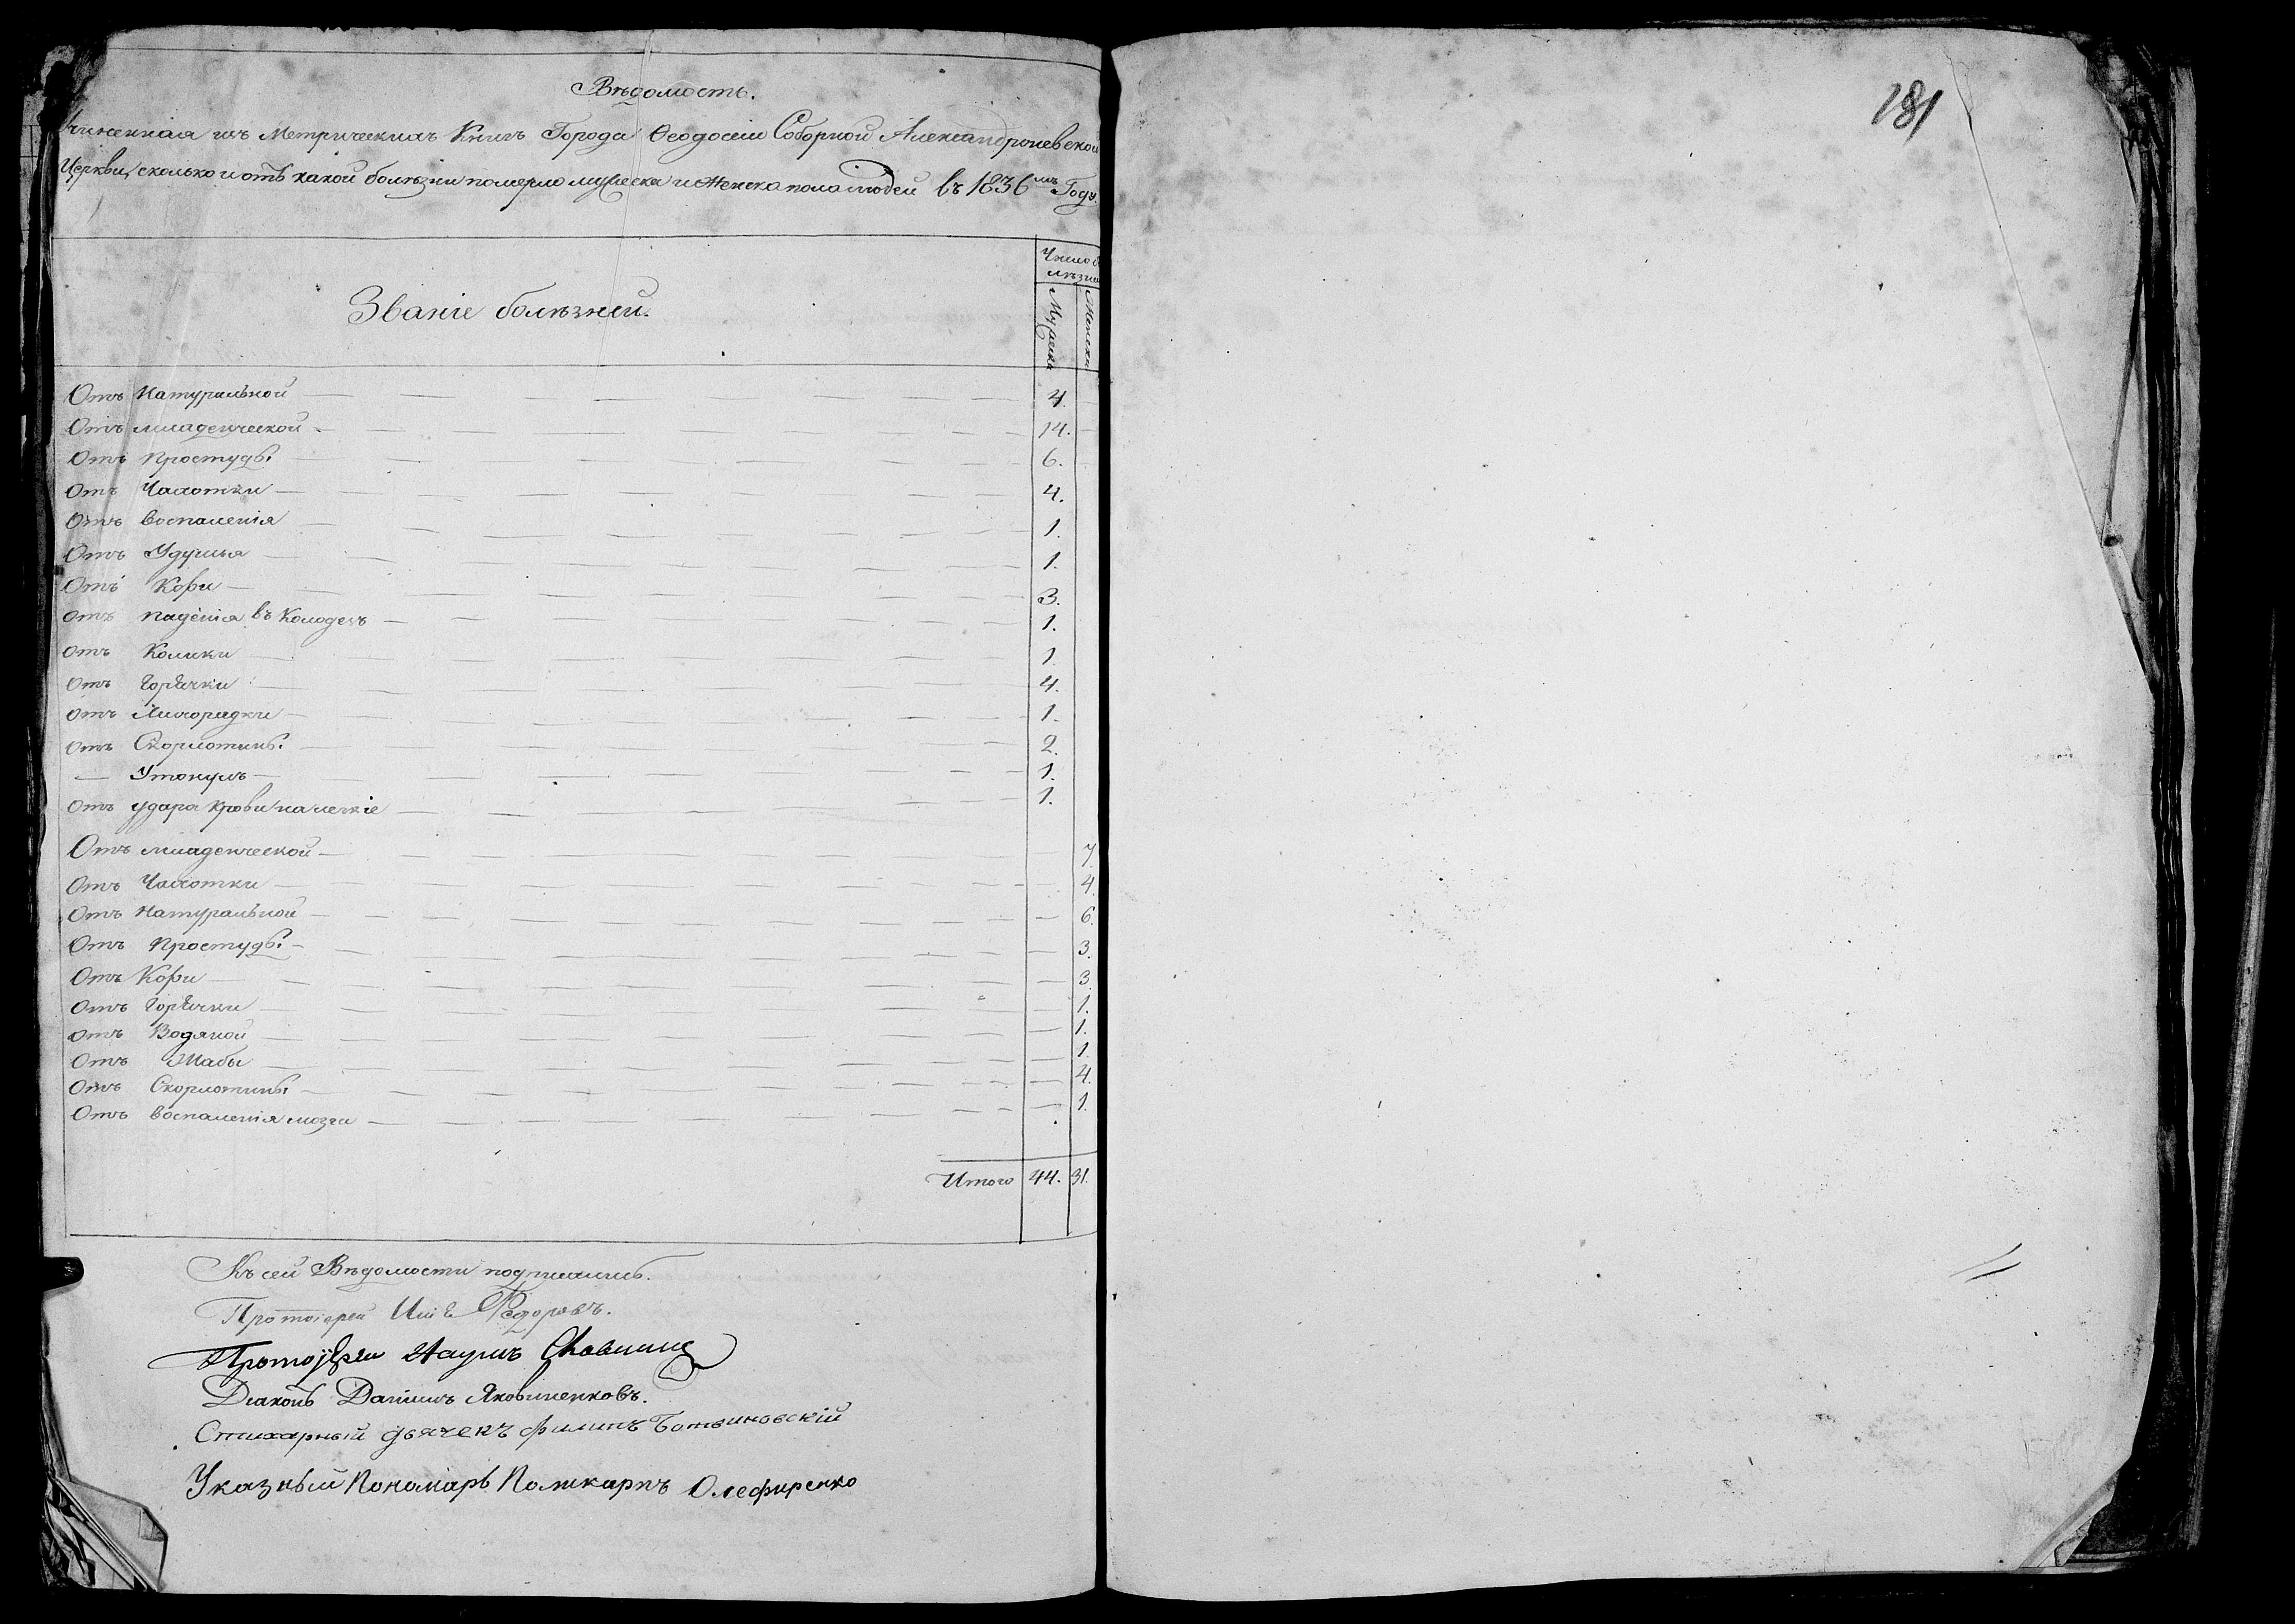 Вѣдомость.
Учиненная изъ Метрическихъ Книгъ Города Ѳеодосіи Соборной Александроневской
Церкви, сколько и отъ какой болѣзни померло мужеска и женска пола людей въ 1836мъ Году.
Званіе болѣзней.
Число бо
лѣзней
Мужеска
Женска
Отъ Натуральной — 4.
Отъ младенческой — 14.
Отъ Простуды — 6.
Отъ Чахотки — 4.
Отъ воспаленія — 1.
Отъ Удушья — 1.
Отъ Кори — 3.
Отъ падѣнія въ Колодезь — 1.
Отъ Колики — 1.
Отъ Горѣчки — 4.
Отъ Лихорадки — 1.
Отъ Скорлотины — 2.
— Утонулъ — 1.
Отъ удара крови на легкіе — 1.
Отъ младенческой — 7
Отъ Чахотки — 4.
Отъ Натуральной — 6.
Отъ Простуды — 3.
Отъ Кори — 3.
Отъ Горѣчки — 1.
Отъ Водяной — 1.
Отъ Жабы — 1.
Отъ Скорлотины — 4.
Отъ воспаленія мозга — 1.
Итого 44. 31.
Къ сей Вѣдомости подписались.
Протоіерей Илія Ѳедоровъ.
Протоіерей Наумъ
Діаконъ Даніилъ Яковиченковъ.
Стихарный дьячекъ Филипъ Ботвиновскій
Указный Пономарь Поликарпъ Олефиренко
181